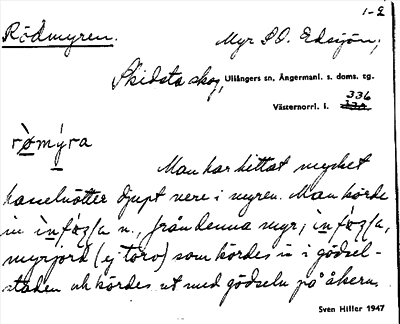 1-2
Rödmyren. Myr SO. Edsjön,
Skidsta skog, Ullångers sn, Ångermanl. s. doms. tg.
336
Västernorrl. l.
Man har hittat mycket
hasselnötter djupt nere i myren. Man körde
in n., från denna myr;
myrjord (ej torv) som kördes in i gödsel-
staden och kördes ut med gödseln på åkern.
Sven Hiller 1947